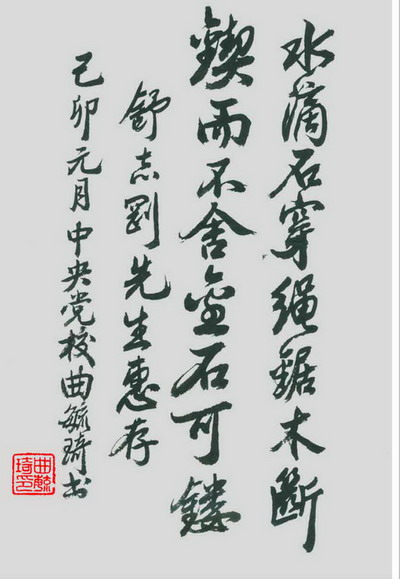 水滴石穿绳锯木斷
鍥而不舍金石可鏤
舒志剛先生惠存
己卯元月中央党校曲毓琦书
曲毓琦印